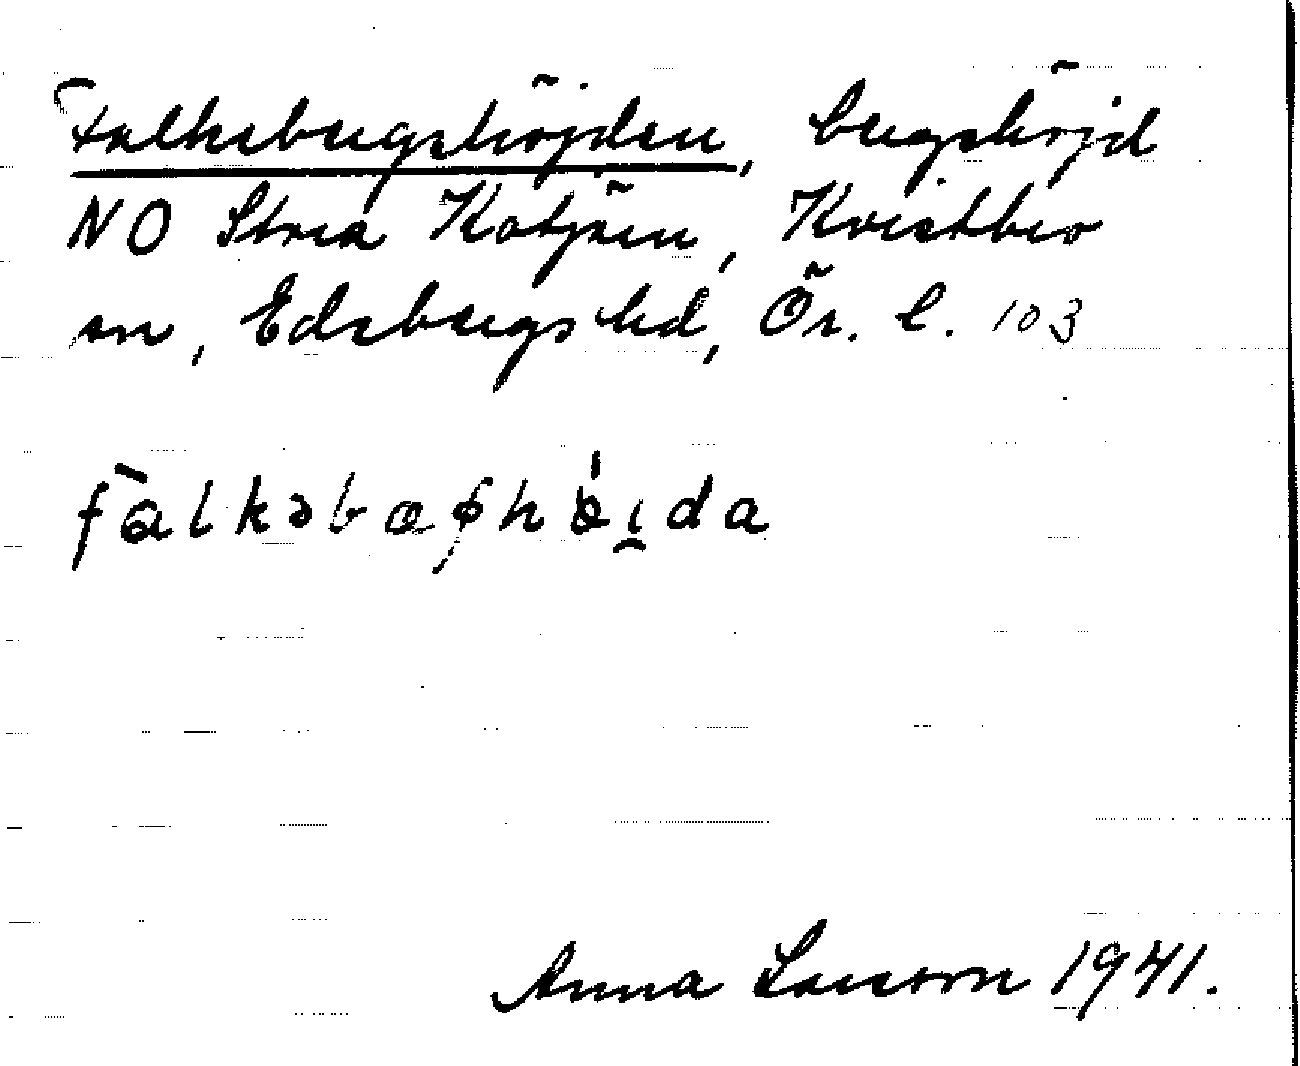 Falksbergshöjden, bergshöjd
NO Stora Kotjärn, Kvistbro
sn, Edsbergs hd, Ör. l. 103
fàlkəbæȩhǿi̯da
Anna Larsson 1941.